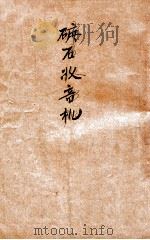 矿石收音机